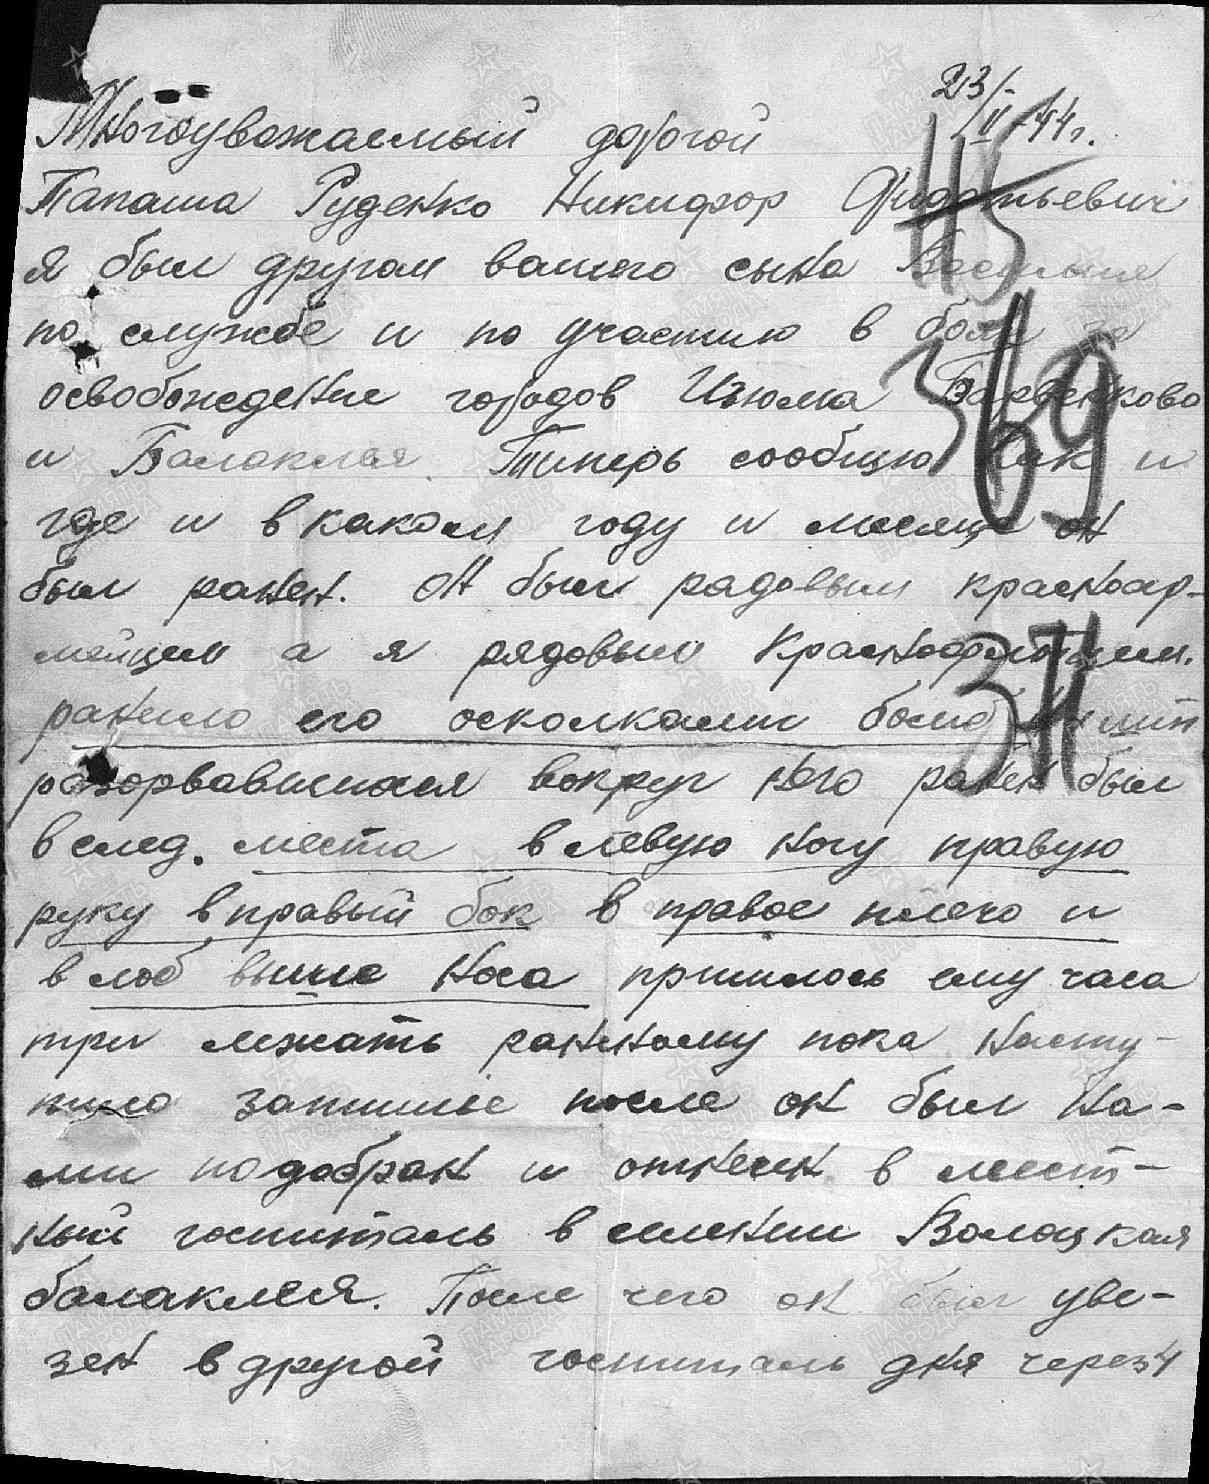 23/II-44г.
Многоуважаемый дорогой
Папаша Руденко Никифор
я был другом вашего сына Василия
по службе и по участию в боях за
освобождение городов Изюма Барвенково
и Балаклая Типерь сообщю как и
где и в каком году и месяце он
был ранен. он был радовым красноар-
мейцем а я рядовым Краснофлотцем.
ранило его осколками бомб и мин
разорвавшихся вокруг него ранен был
в след. места в левую ногу правую
руку в правый бок в правое плечо и
в лоб выше носа пришлось ему часа
три лежать раненому пока насту-
пило затишье после он был на-
ми подобран и отнесен в мест-
ный госпиталь в селении
балаклея. После чего он был уве-
зен в другой госпиталь дня через 4
115
369
371